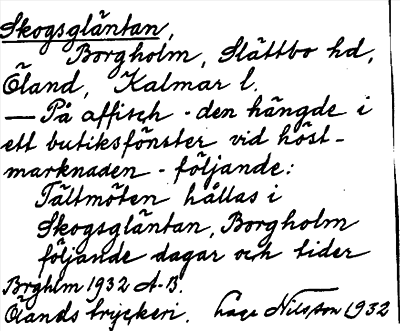 Skogsgläntan,
Borgholm, Slättbo hd,
Öland, Kalmar l.
— På affisch - den hängde i
ett butiksfönster vid höst-
marknaden - följande:
Tältmöten hållas i
Skogsgläntan, Borgholm
följande dagar och tider
Brghlm 1932 A-B.
Ölands tryckeri. Lage Nilsson 1932